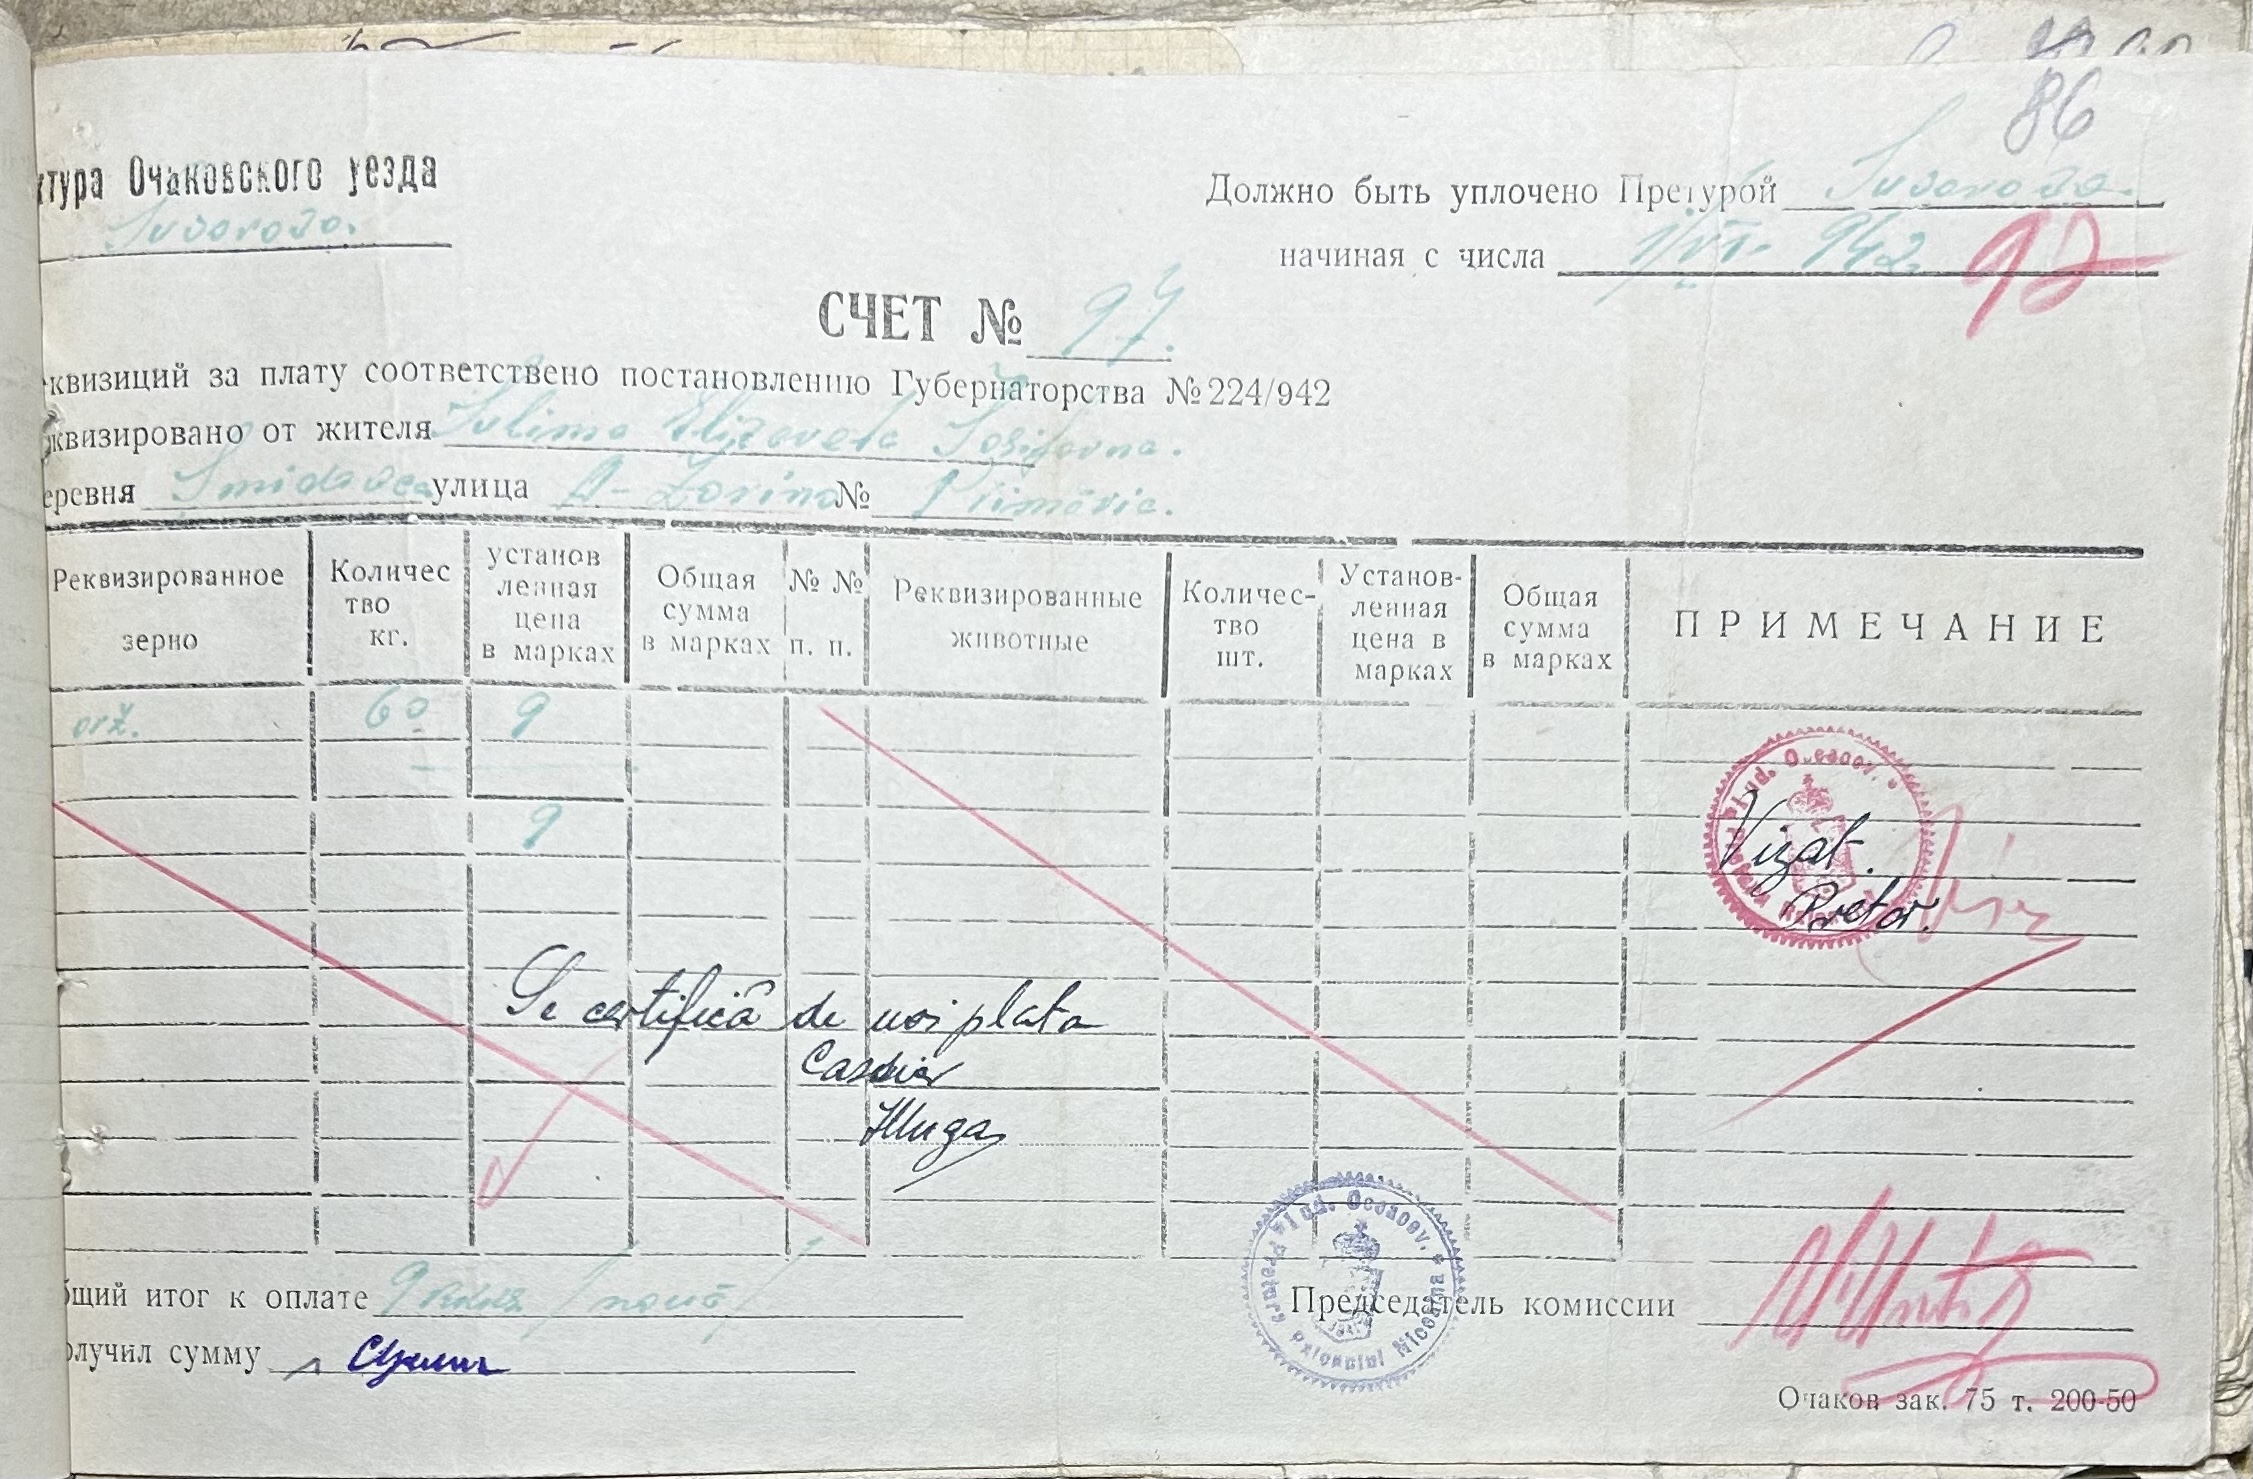 86
ктура Очаковского уезда
Suvorovo.
Должно быть уплочено Претурой Suvorovo.
начиная с числа 1/VI. 942.
СЧЕТ № 97.
еквизиций за плату соответствено постановлению Губернаторства №224/942
еквизировано от жителя Sulima Elizaveta Iosifovna.
еревня улица №
Реквизированное зерно
Количес тво кг.
установ ленная цена в марках
Общая сумма в марках
№ № п. п.
Реквизированные животные
Количес- тво шт.
Установ- ленная цена в марках
Общая сумма в марках
ПРИМЕЧАНИЕ
orz. 60 9
9
Vizat.
Pretor.
Se certifică de noi plata
Casier
бщий итог к оплате 9 /nouă/
Председатель комиссии
олучил сумму
Pretura Raionului Nicolaina Jud. Oceacov.
Очаков зак. 75 т. 200-50